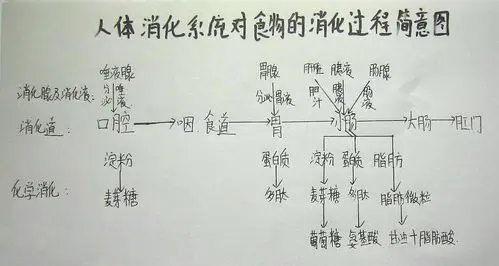 人体消化系统对食物的消化过程简意图
唾液腺 胃腺 肝脏 胰液 肠腺
消化腺及消化液: 分泌 唾液 分泌胃液 胆汁 胰液 肠液
消化道: 口腔 咽 食道 胃 小肠 大肠 肛门
淀粉 蛋白质 淀粉 蛋白质 脂肪
化学消化: 麦芽糖 多肽 麦芽糖 多肽 脂肪微粒
葡萄糖 氨基酸 甘油+脂肪酸